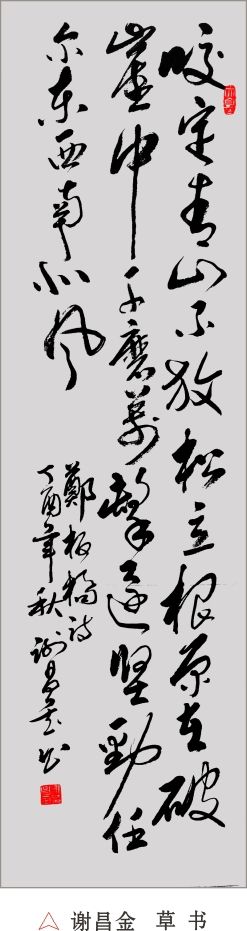 咬定青山不放松立根原在破
崖中千磨萬擊还坚勁任
尔东西南北风
鄭板橋诗
丁酉年秋谢昌金书
△ 谢昌金 草书